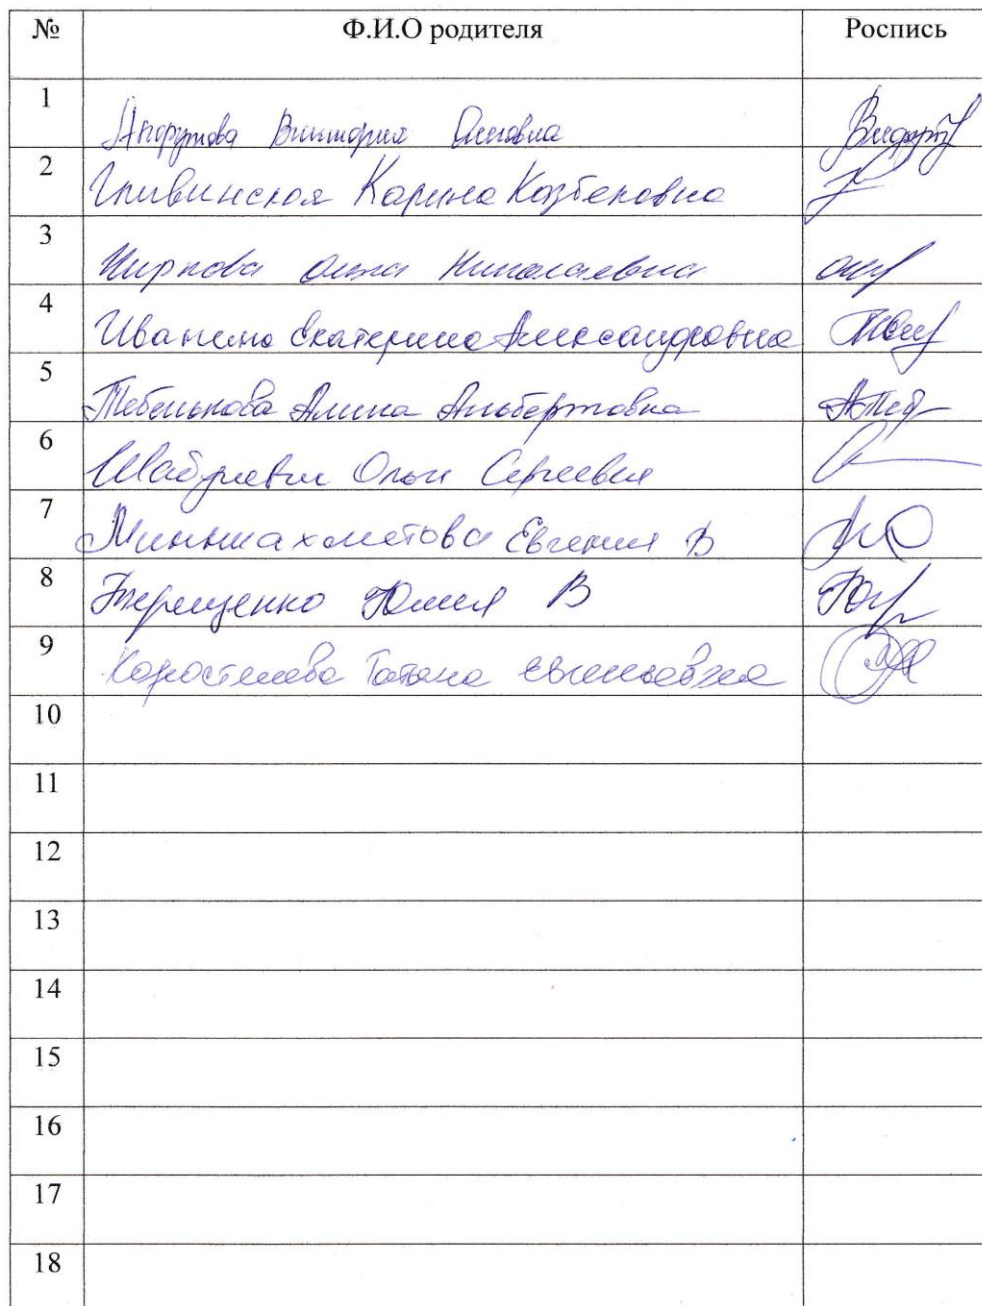 № Ф.И.О родителя Роспись
1 Виктория Олеговна
2 Карина Казбековна
3 Ольга Николаевна
4 Иванина Екатерина Александровна
5 Тебенькова Алина Альбертовна
6 Ольга Сергеевна
7 Минниахметова Евгения В
8 Терещенко Юлия В
9 Коростелева Татьяна Евгеньевна
10
11
12
13
14
15
16
17
18